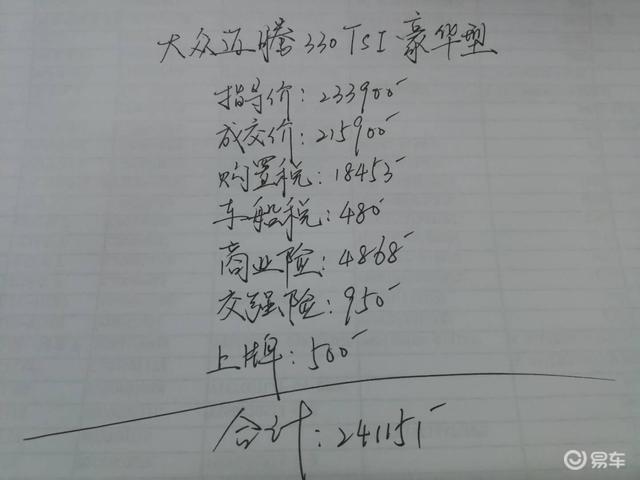 大众迈腾330TSI豪华型
指导价:233900
成交价:215900
购置税:18453
车船税:480
商业险:4868
交强险:950
上牌:500
合计:241151
易车